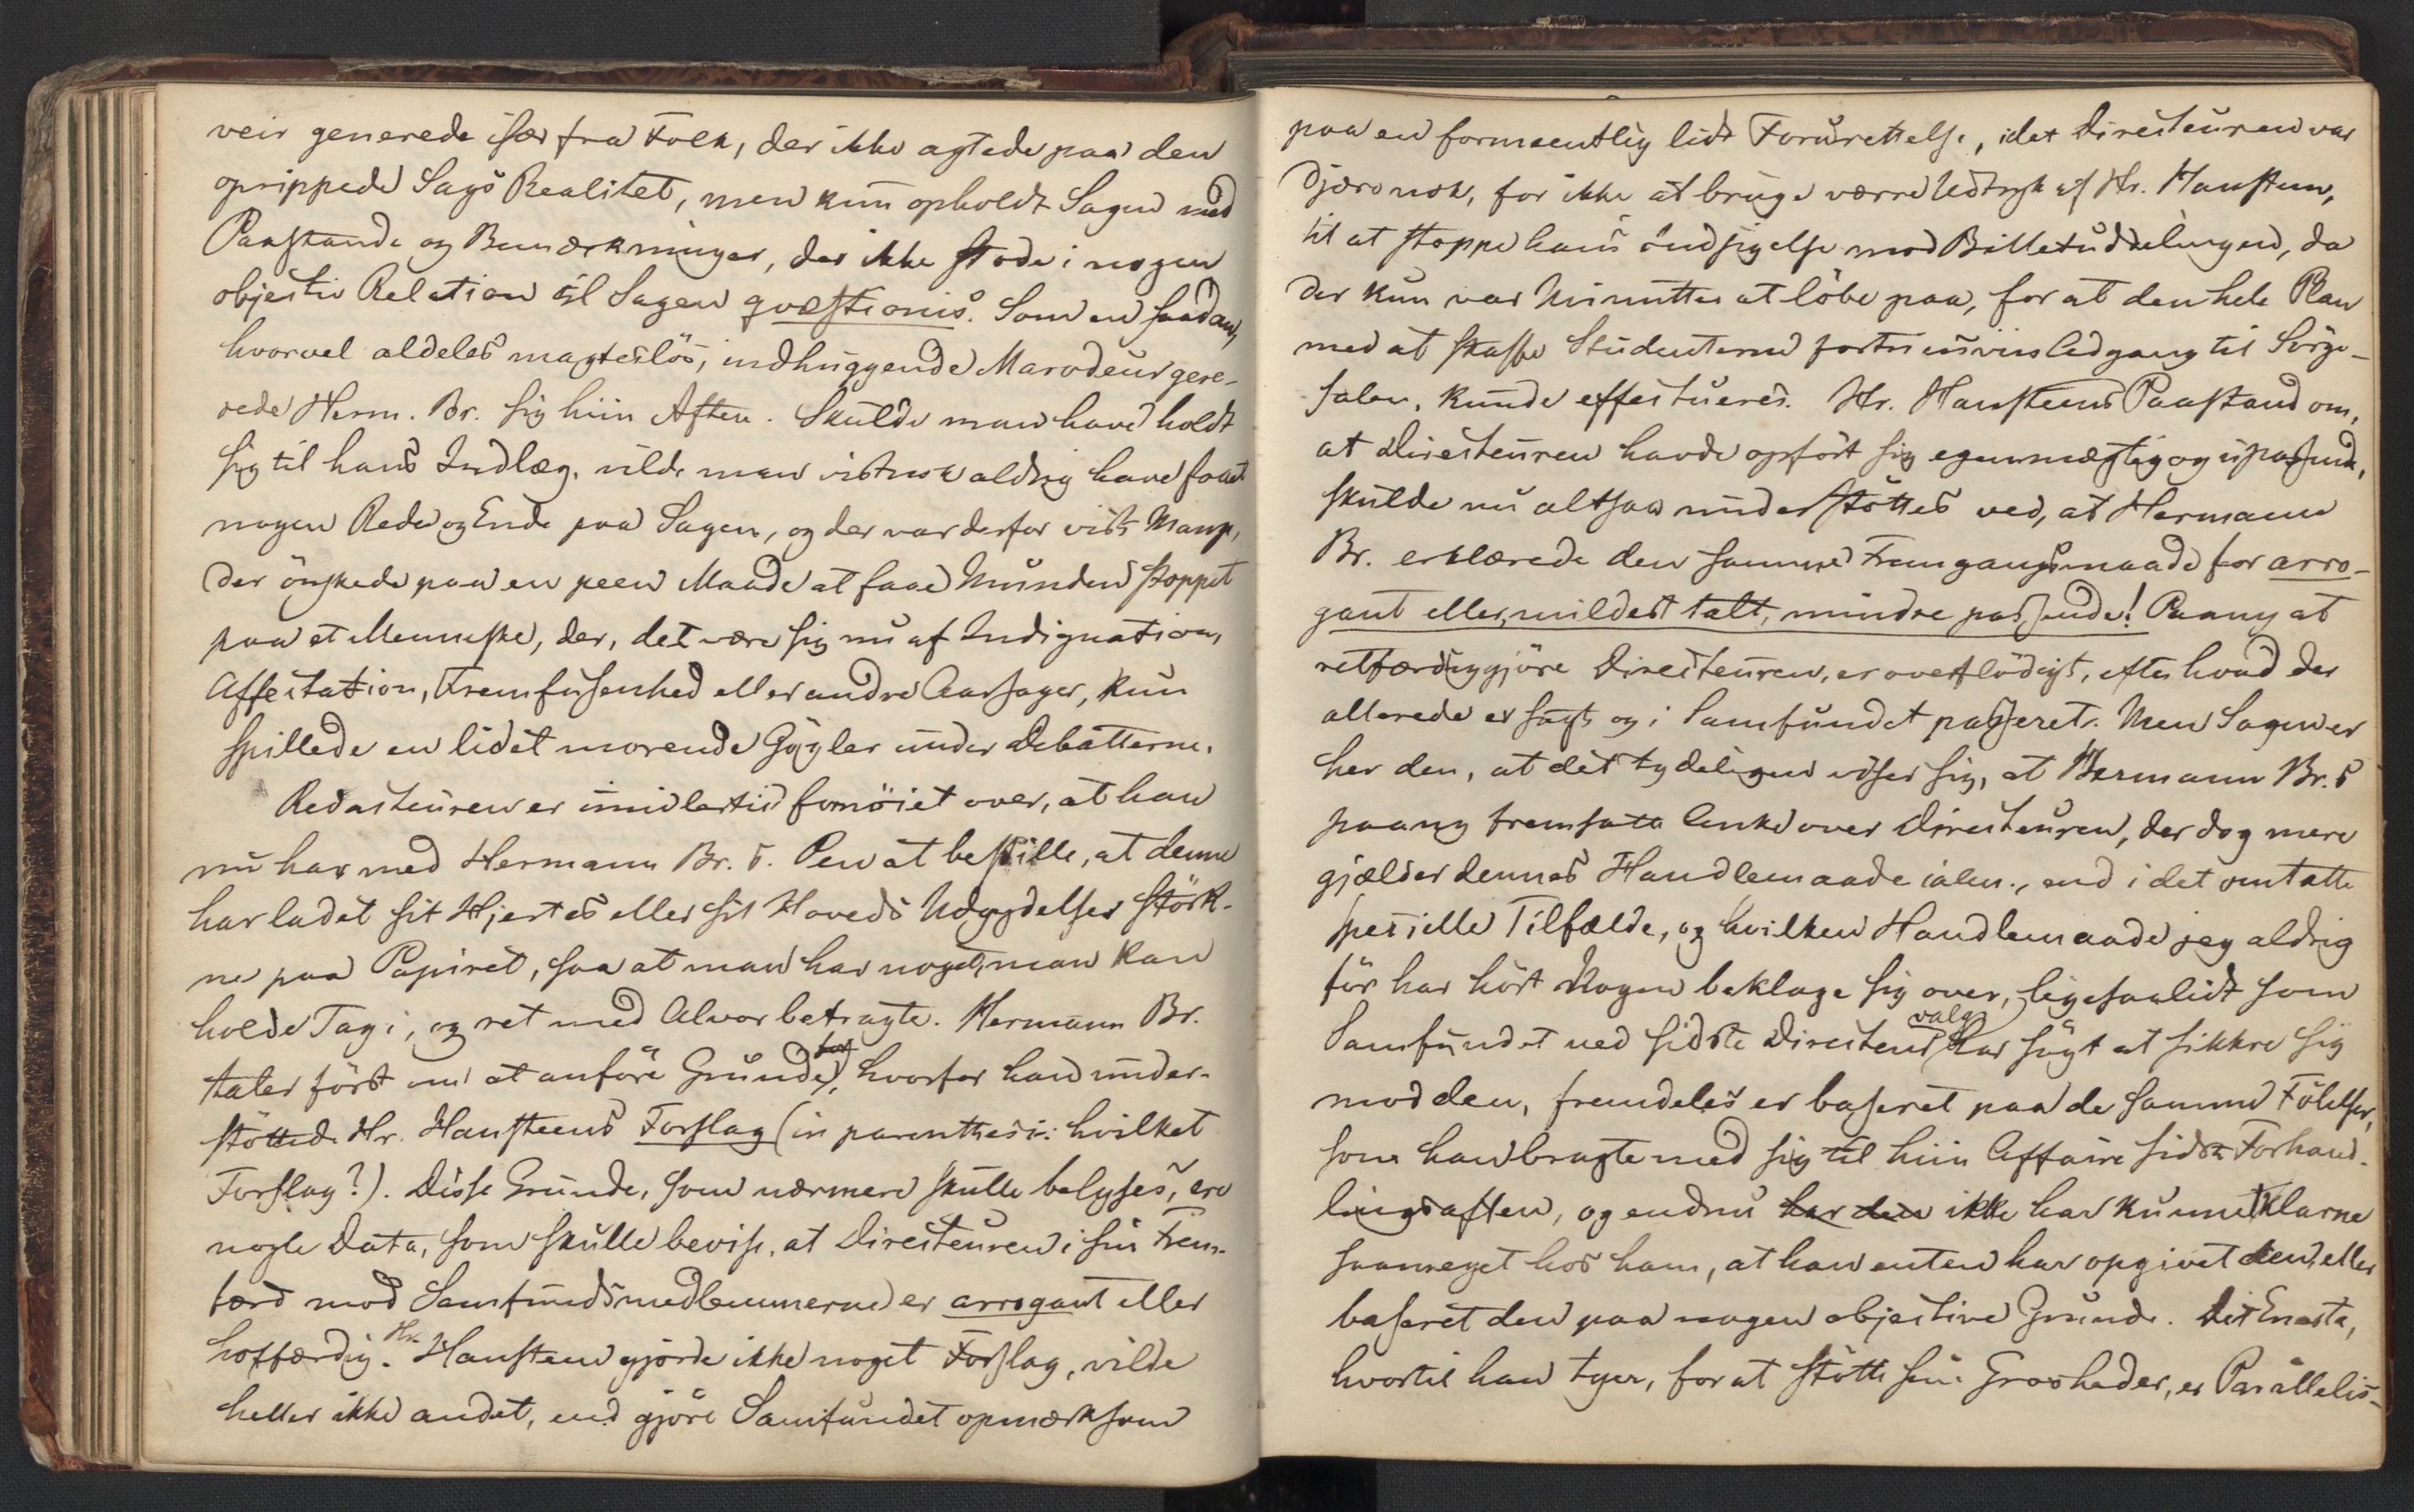 veir generede især fra Folk, der ikke agtede paa den
oprippede Sags Realitet, men kun opholdt Sagen med
Paastande og Bemærkninger, der ikke stode i nogen
objectiv Relation til Sagen qvæstionis. Som en saadan,
hvorvel aldeles magtesløs, indhuggende Marodeur gere-
rede Herm. Br. sig hiin Aften. Skulde man have holdt
sig til hans Indlæg, vilde man vistnok aldrig have faaet
nogen Rede og Ende paa Sagen, og der var derfor vist Mange,
der ønskede paa en peen Maade at faae Munden stoppet
paa et Menneske, der, det være sig nu af Indignation,
Affectation, Fremfusenhed eller andre Aarsager, kun
spillede en lidet morende Gøgler under Debatterne.
Redacteuren er imidlertid fornøiet over, at han
nu har med Hermann Br. s. Pen at bestille, at denne
har ladet sit Hjertes eller sit Hoveds Udgydelser størk-
ne paa Papiret, saa at man har noget, man kan
holde Tag i, og ret med Alvor betragte. Hermann Br.
taler først om at anføre Grunde, for hvorfor han under-
støttede Hr. Hansteens Forslag (in parenthesi: hvilket
Forslag?). Disse Grunde, som nærmere skulle belyses, ere
nogle Data, som skulle bevise, at Directeuren i sin Frem-
færd mod Samfundsmedlemmerne er arrogant eller
hoffærdig. Hr. Hansteen gjorde ikke noget Forslag, vilde
heller ikke andet, end gjøre Samfundet opmærksom
paa en formeentlig lidt Forurettelse, idet Directeuren var
djærv nok, for ikke at bruge værre Udtryk af Hr. Hansteen,
til at stoppe hans Indsigelse mod Billetuddelingen, da
der kun var Minutter at løbe paa, for at den hele Plan
med at skaffe Studenterne fortrinsviis Adgang til Sørge-
salen, kunde effectueres. Hr. Hansteens Paastand om,
at Directeuren havde opført sig egenmægtig og upassende,
skulde nu altsaa understøttes ved, at Hermann
Br. erklærede den samme Fremgangsmaade for arro-
gant eller, mildest talt, mindre passende! Paany at
retfærdiggjøre Directeuren, er overflødigt, efter hvad der
allerede er sagt og i Samfundet passeret. Men Sagen er
her den, at det tydeligen viser sig, at Hermann Br. s
paany fremsatte Anke over Directeuren, der dog mere
gjælder dennes Handlemaade i alm., end i det omtalte
specielle Tilfælde, og hvilken Handlemaade jeg aldrig
før har hørt Nogen beklage sig over, ligesaalidt som
Samfundet ved sidste Directeurvalg har søgt at sikkre sig
mod den, fremdeles er baseret paa de samme Følelser,
som han bragte med sig til hiin Affaire sidste Forhand-
lingsaften, og endnu har den ikke har kunnet klarne
saameget hos ham, at han enten har opgivet den, eller
baseret den paa nogen objective Grunde. Det Eneste,
hvortil han tyer, for at støtte sine Grovheder, er Parallelis-